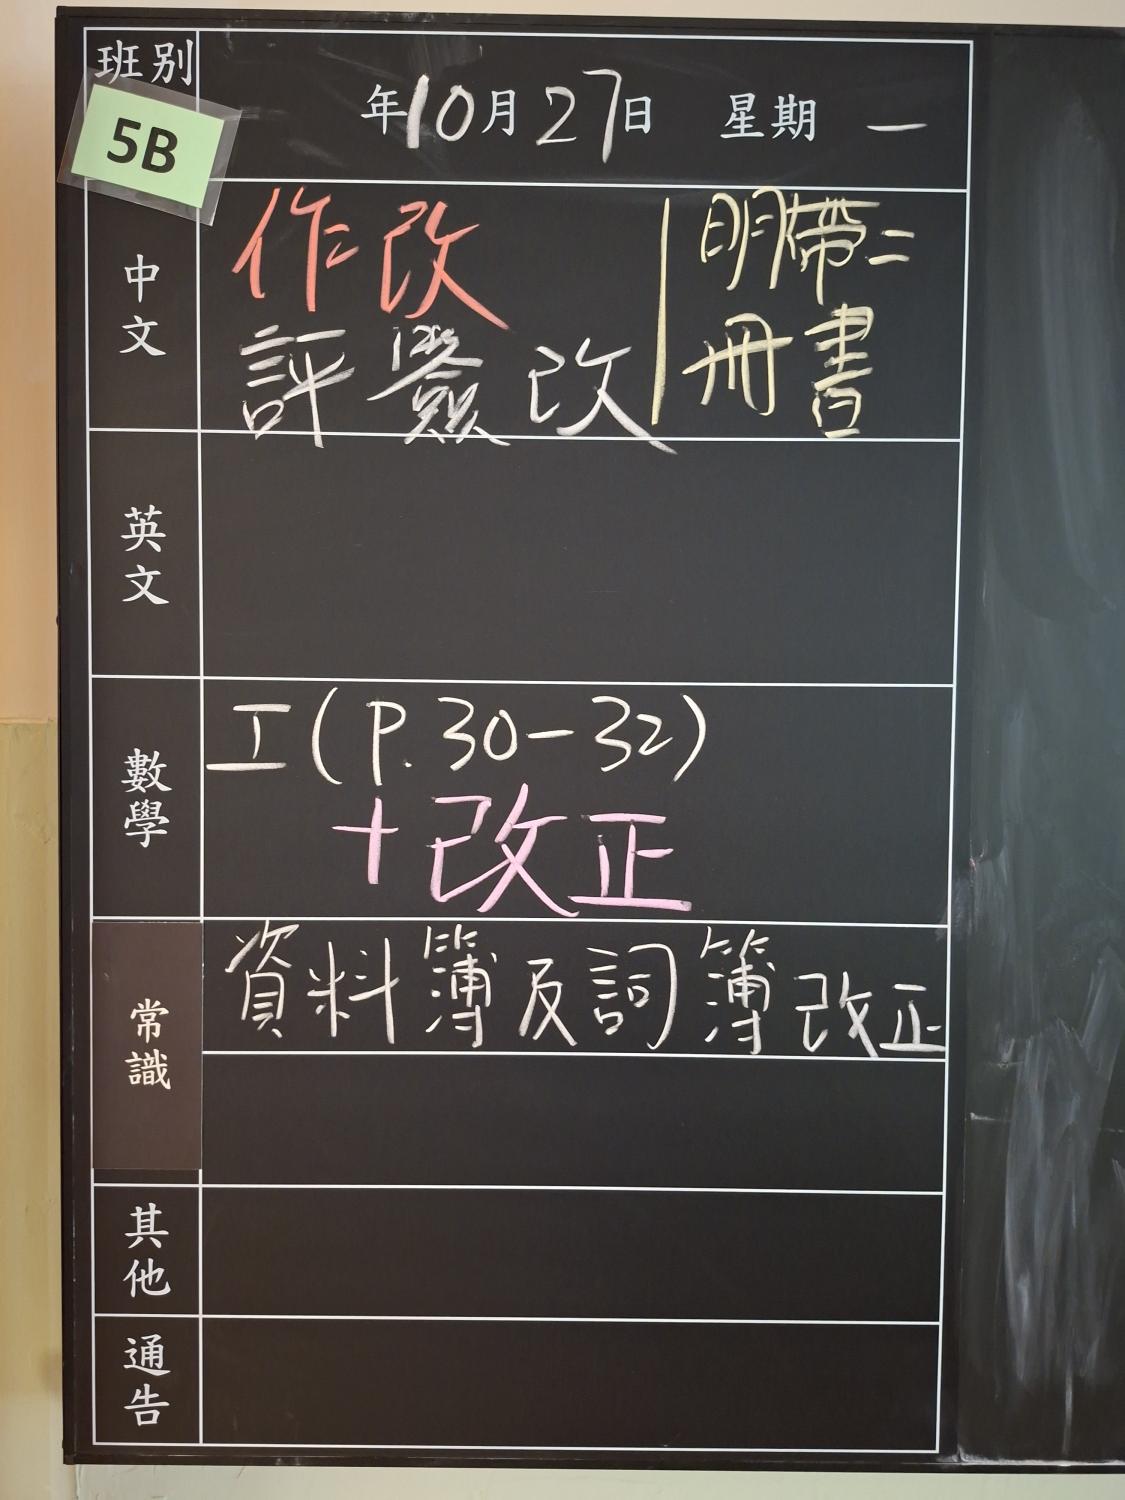 班別
5B
年10月27日 星期 一
中文
作改
評 改
明帶二
冊書
英文
數學
工(P.30-32)
+改正
常識
資料簿及詞簿改正
其他
通告